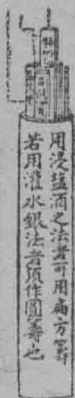 用浸鹽酒之法者可用扁方籌
若用灌水銀法者須作圓籌也